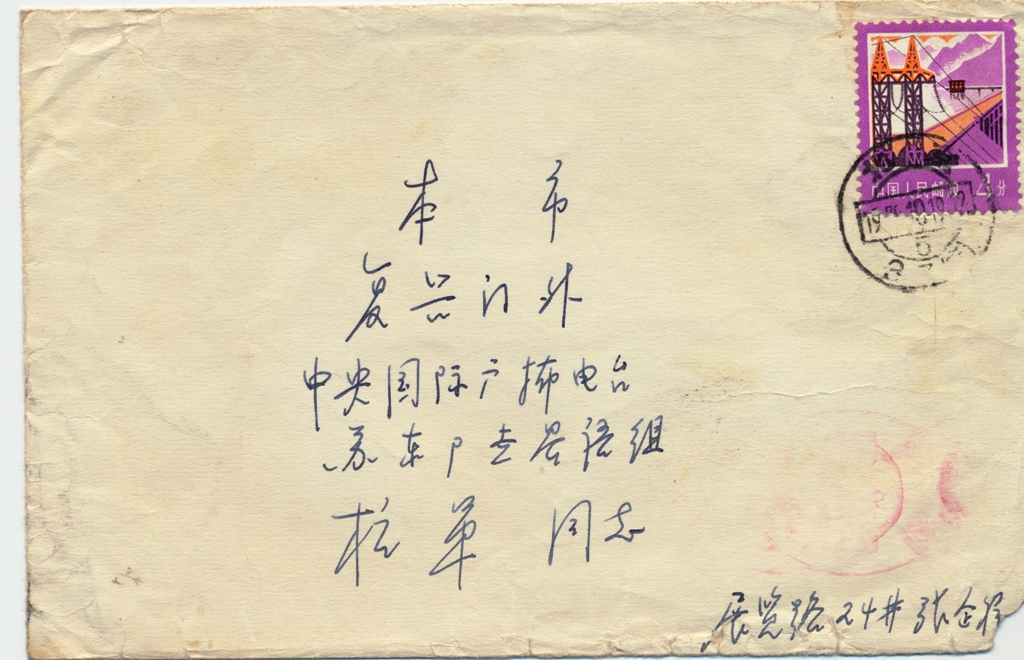 中国人民邮政 4分
本市
复兴门外
中央国际广播电台
苏东户世界语组
同志
展览路24井 张企程